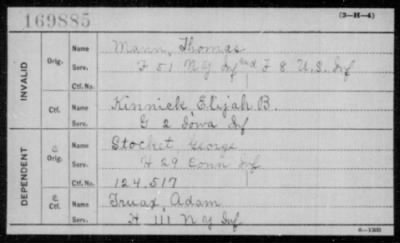 169885
(3-H-4)
INVALID
Orig. Name Mann, Thomas
Serv. F 51 N Y Inf and F 8 U.S. Inf
Ctf. No.
Ctf. Name Kinnick Elijah B.
Serv. G 2 Iowa Inf
DEPENDENT
Orig. Name Stocket, George
Serv. H 29 Conn Inf
Ctf. No. 124,517
Ctf. Name Truax, Adam
Serv. H 111 N Y Inf